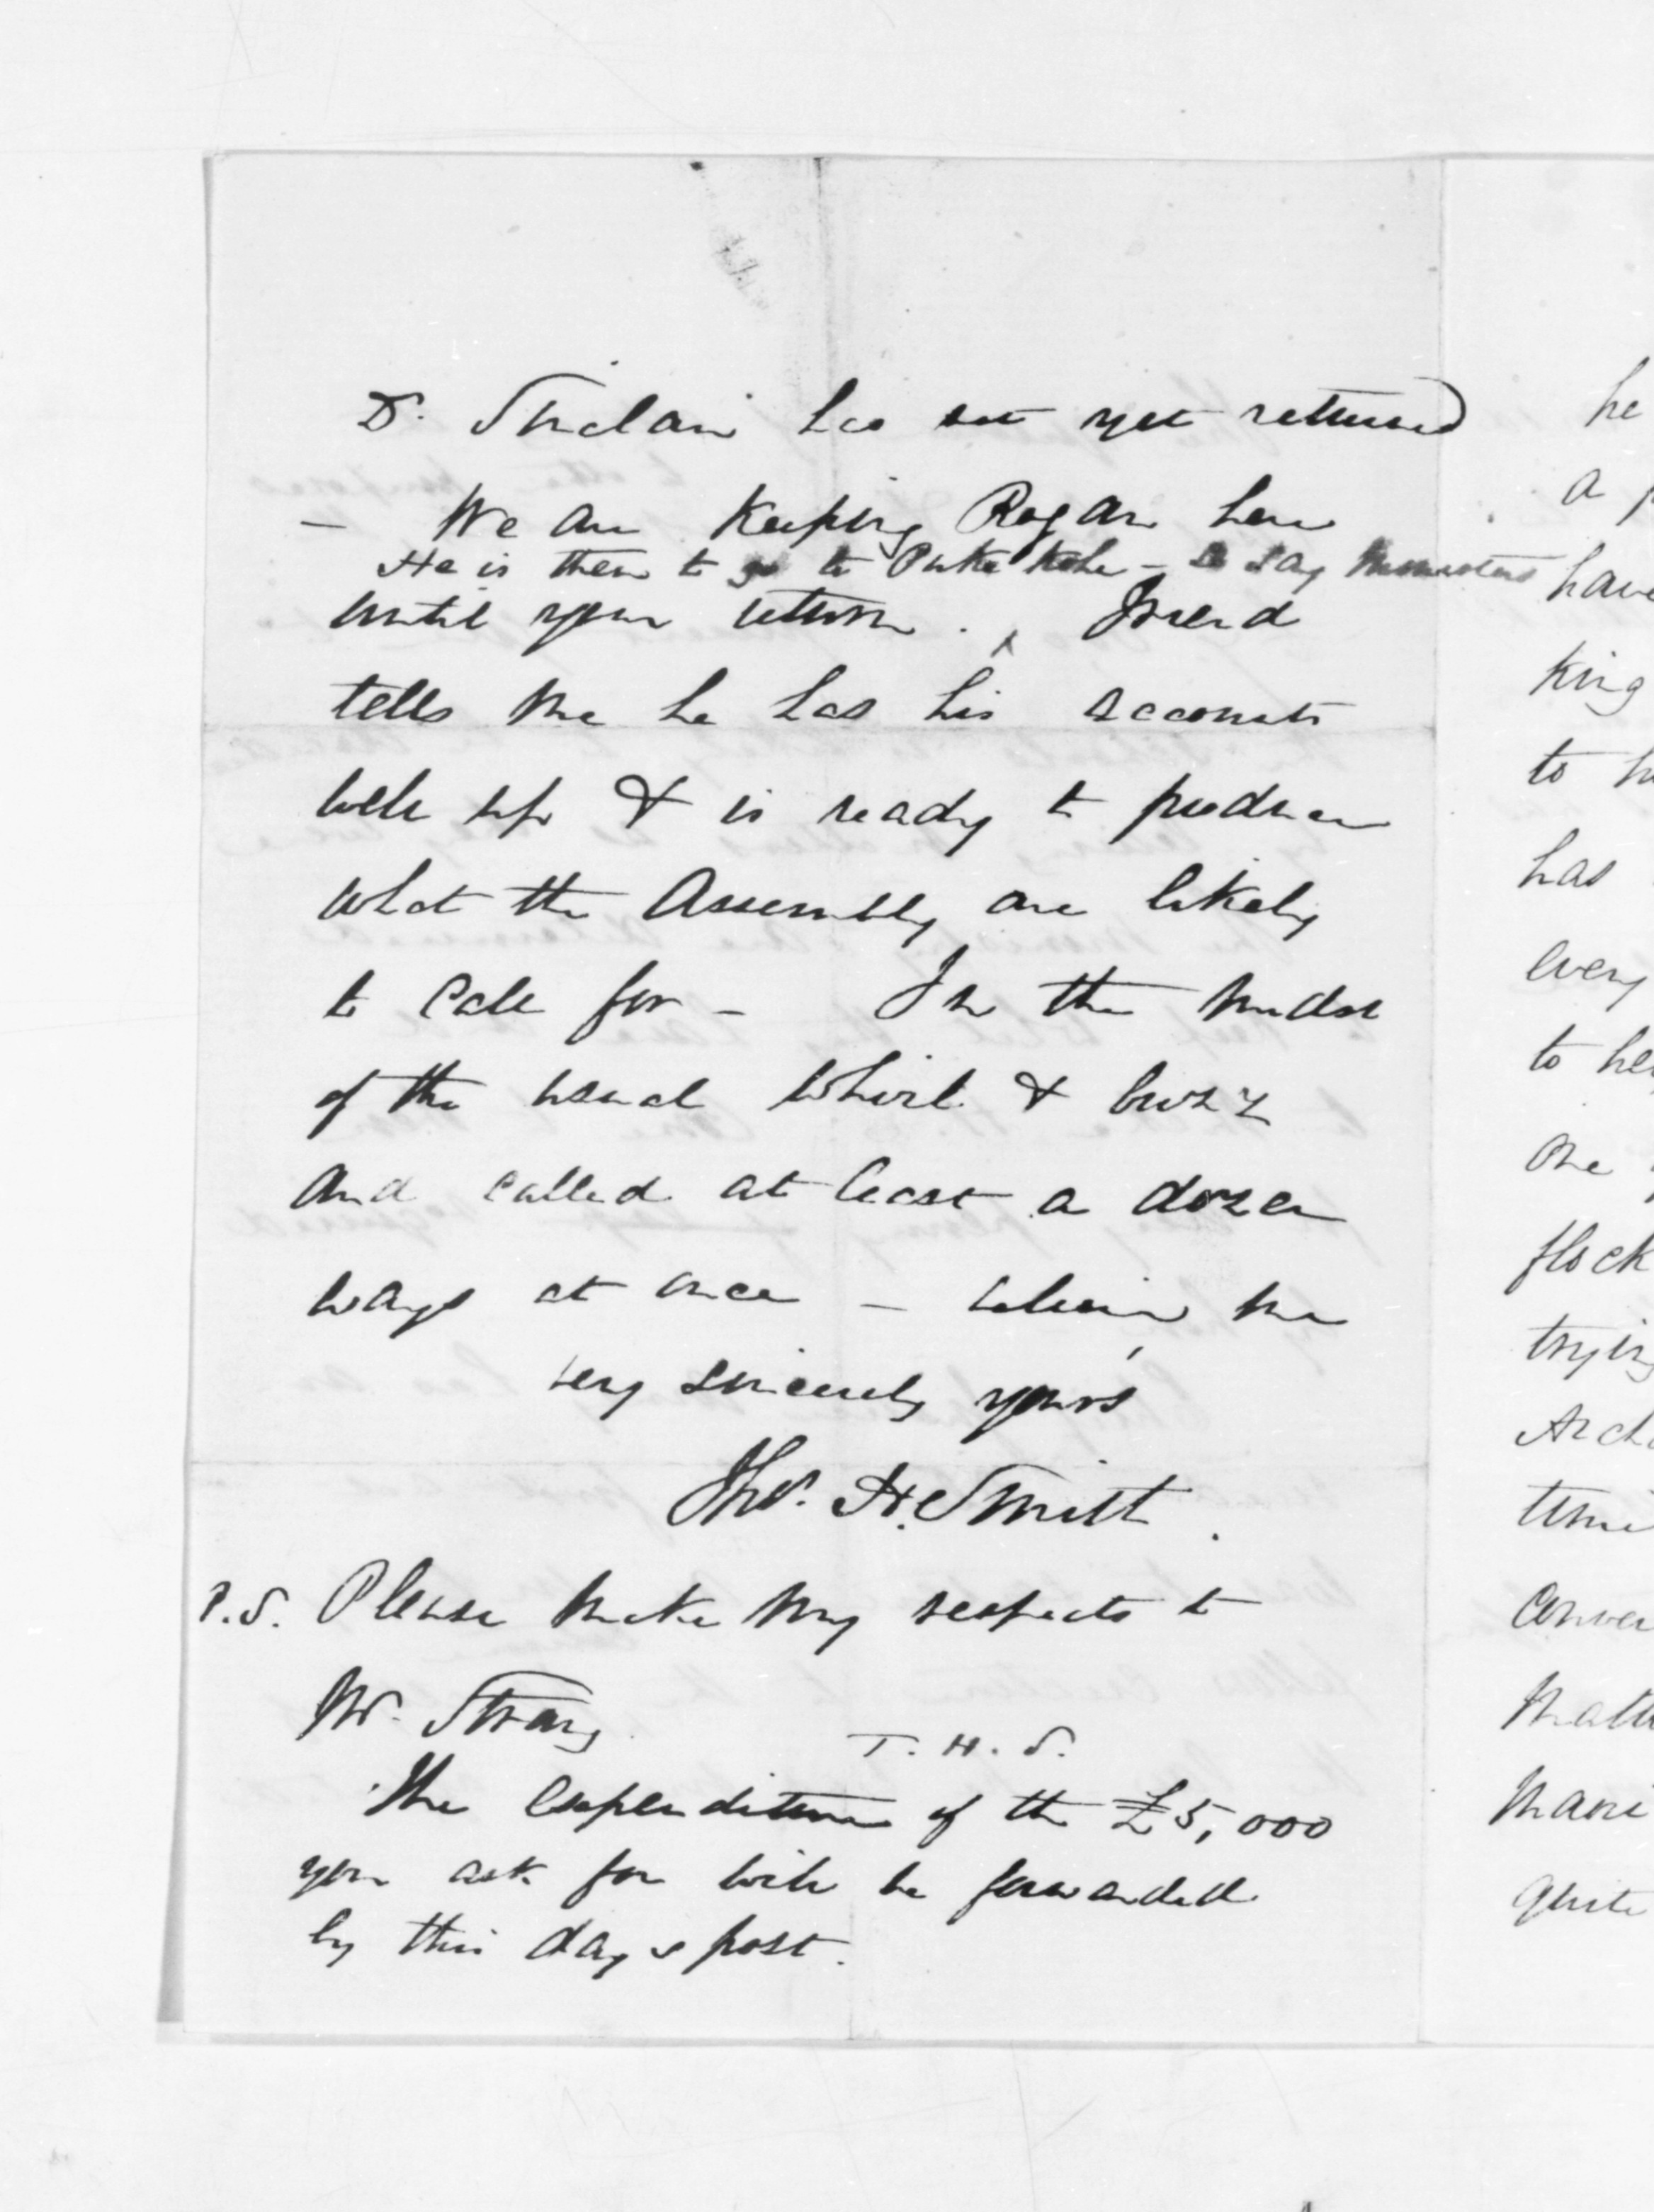 Dr. Sinclair has not yet returned
— We are keeping Rogan here
He is then to go to Pukekohe – so say Ministers
until your return . ^
tells me he has his accounts
well up & is ready to produce
what the Assembly are likely
to call for – In the midst
of the usual whirl & buzz
and called at least a dozen
ways at once – believe me
very sincerely yours
Thos. H. Smith.
P.S. Please make my respects to
Mr. Strang.
T. H. S.
The expenditure of the £5,000
you ask for will be forwarded
by this days post.
he
a
have
King
to
has
every
to
one
flock
trying
time
quite